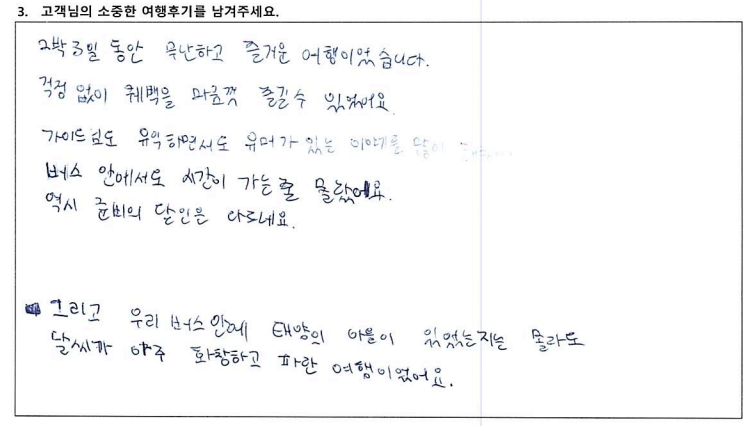 3. 고객님의 소중한 여행후기를 남겨주세요.
2박 3일 동안 무난하고 즐거운 여행이었습니다.
걱정 없이 퀘백을 마음껏 즐길 수 있었어요.
가이드님도 유익하면서도 유머가 있는 이야기를 많이
버스 안에서도 시간이 가는 줄 몰랐어요.
역시 준비의 달인은 다르네요.
그리고 우리 버스 안에 태양의 아들이 있었는지는 몰라도
날씨가 아주 화창하고 파란 여행이었어요.